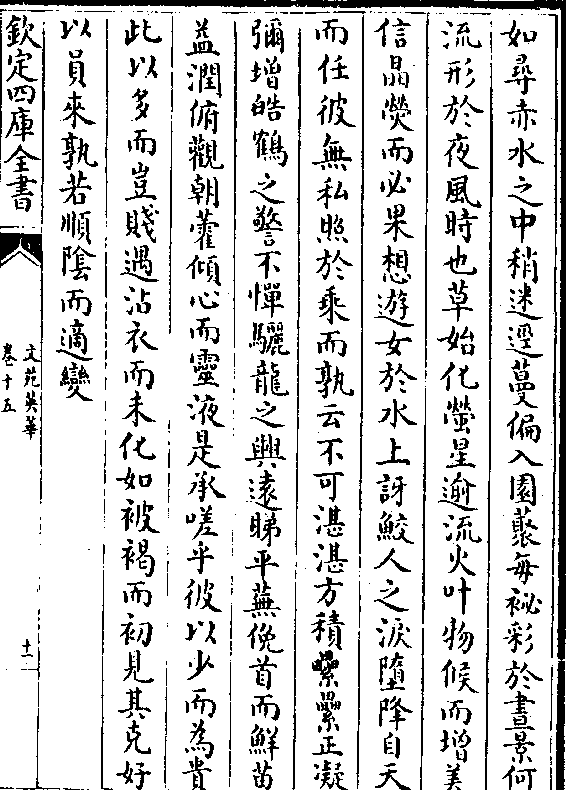 如尋赤水之中稍迷遥蔓偏入園蘂每祕彩於晝景何
流形於夜風時也草始化螢星逾流火叶物候而增美
信晶熒而必果想遊女於水上訝鮫人之淚墮降自天
而任彼無私照於乘而孰云不可湛湛方積纍纍正凝
彌增皓鶴之警不憚驪龍之興遠睇平蕪俛首而鮮苗
益潤俯觀朝藿傾心而靈液是承嗟乎彼以少而為貴
此以多而豈賤遇沾衣而未化如被褐而初見其克好
以員來孰若順隂而適變
欽定四庫全書
文苑英華
卷十五
十二